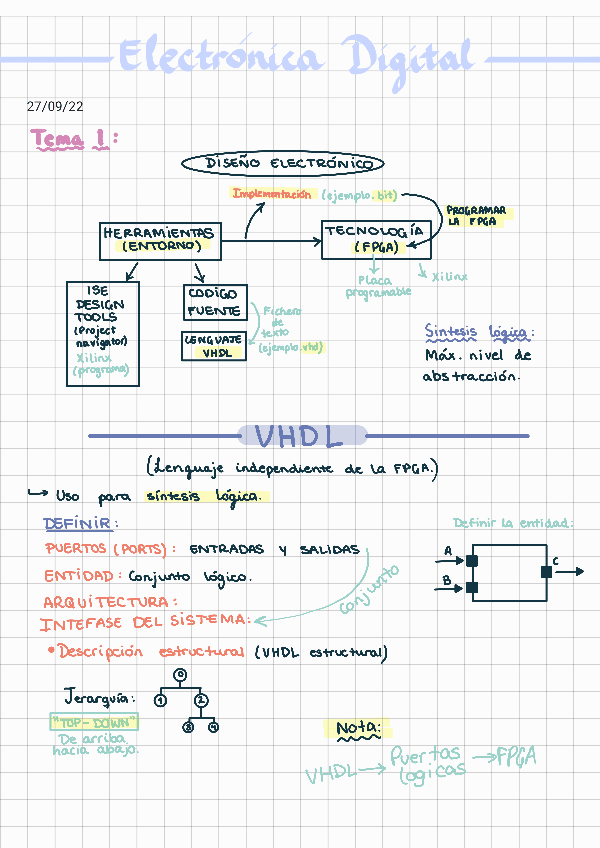 Electrónica Digital
27/09/22
Tema 1:
DISEÑO ELECTRÓNICO
Implementación (ejemplo.bit)
PROGRAMAR
LA FPGA
HERRAMIENTAS
(ENTORNO)
TECNOLOGÍA
(FPGA)
Placa
programable
Xilinx
ISE
DESIGN
TOOLS
(Project
navigator)
Xilinx
(programa)
CODIGO
FUENTE
Fichero
de
texto
(ejemplo.vhd)
LENGUAJE
VHDL
Síntesis lógica:
Máx. nivel de
abstracción.
VHDL
(Lenguaje independiente de la FPGA.)
Uso para síntesis lógica.
DEFINIR:
PUERTOS (PORTS): ENTRADAS Y SALIDAS
ENTIDAD: Conjunto lógico.
ARQUITECTURA:
INTEFASE DEL SISTEMA:
conjunto
Definir la entidad:
A
B
C
• Descripción estructural (VHDL estructural)
Jerarquía:
0
1 2
3 4
"TOP-DOWN"
De arriba
hacia abajo.
Nota:
VHDL → Puertos logicas → FPGA